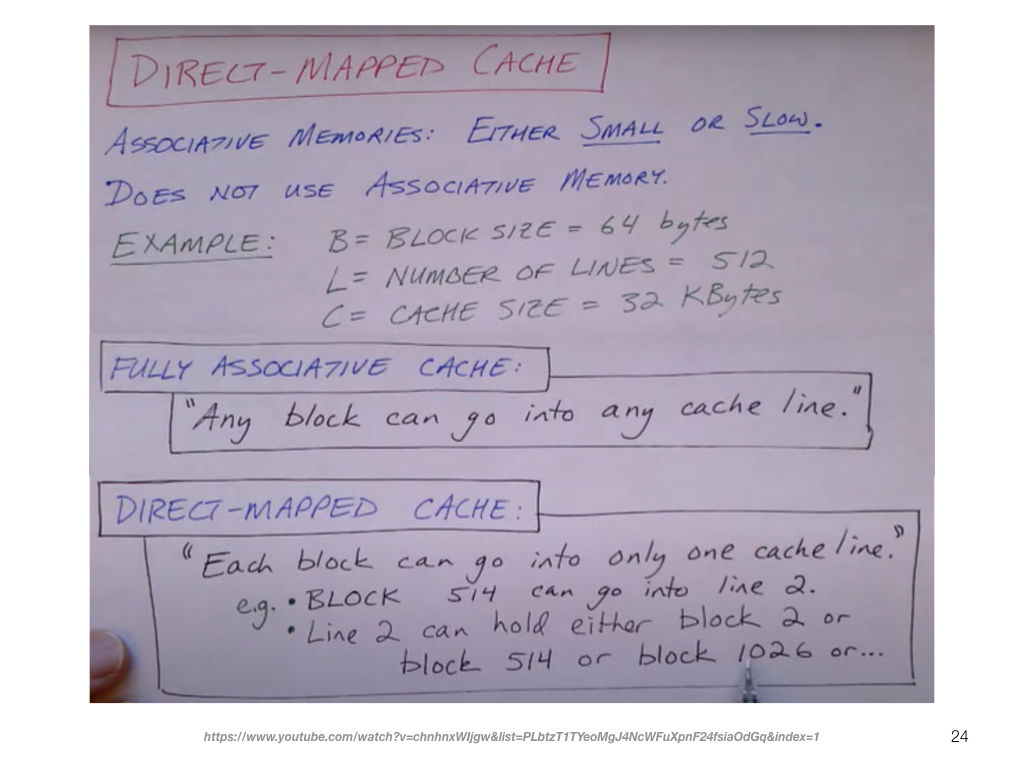 DIRECT-MAPPED CACHE
ASSOCIATIVE MEMORIES: EITHER SMALL OR SLOW.
DOES NOT USE ASSOCIATIVE MEMORY.
EXAMPLE: B = BLOCK SIZE = 64 bytes
L = NUMBER OF LINES = 512
C = CACHE SIZE = 32 KBytes
FULLY ASSOCIATIVE CACHE:
"Any block can go into any cache line."
DIRECT-MAPPED CACHE:
"Each block can go into only one cache line."
e.g. • BLOCK 514 can go into line 2.
• Line 2 can hold either block 2 or
block 514 or block 1026 or...
https://www.youtube.com/watch?v=chnhnxWIjgw&list=PLbtzT1TYeoMgJ4NcWFuXpnF24fsiaOdGq&index=1
24